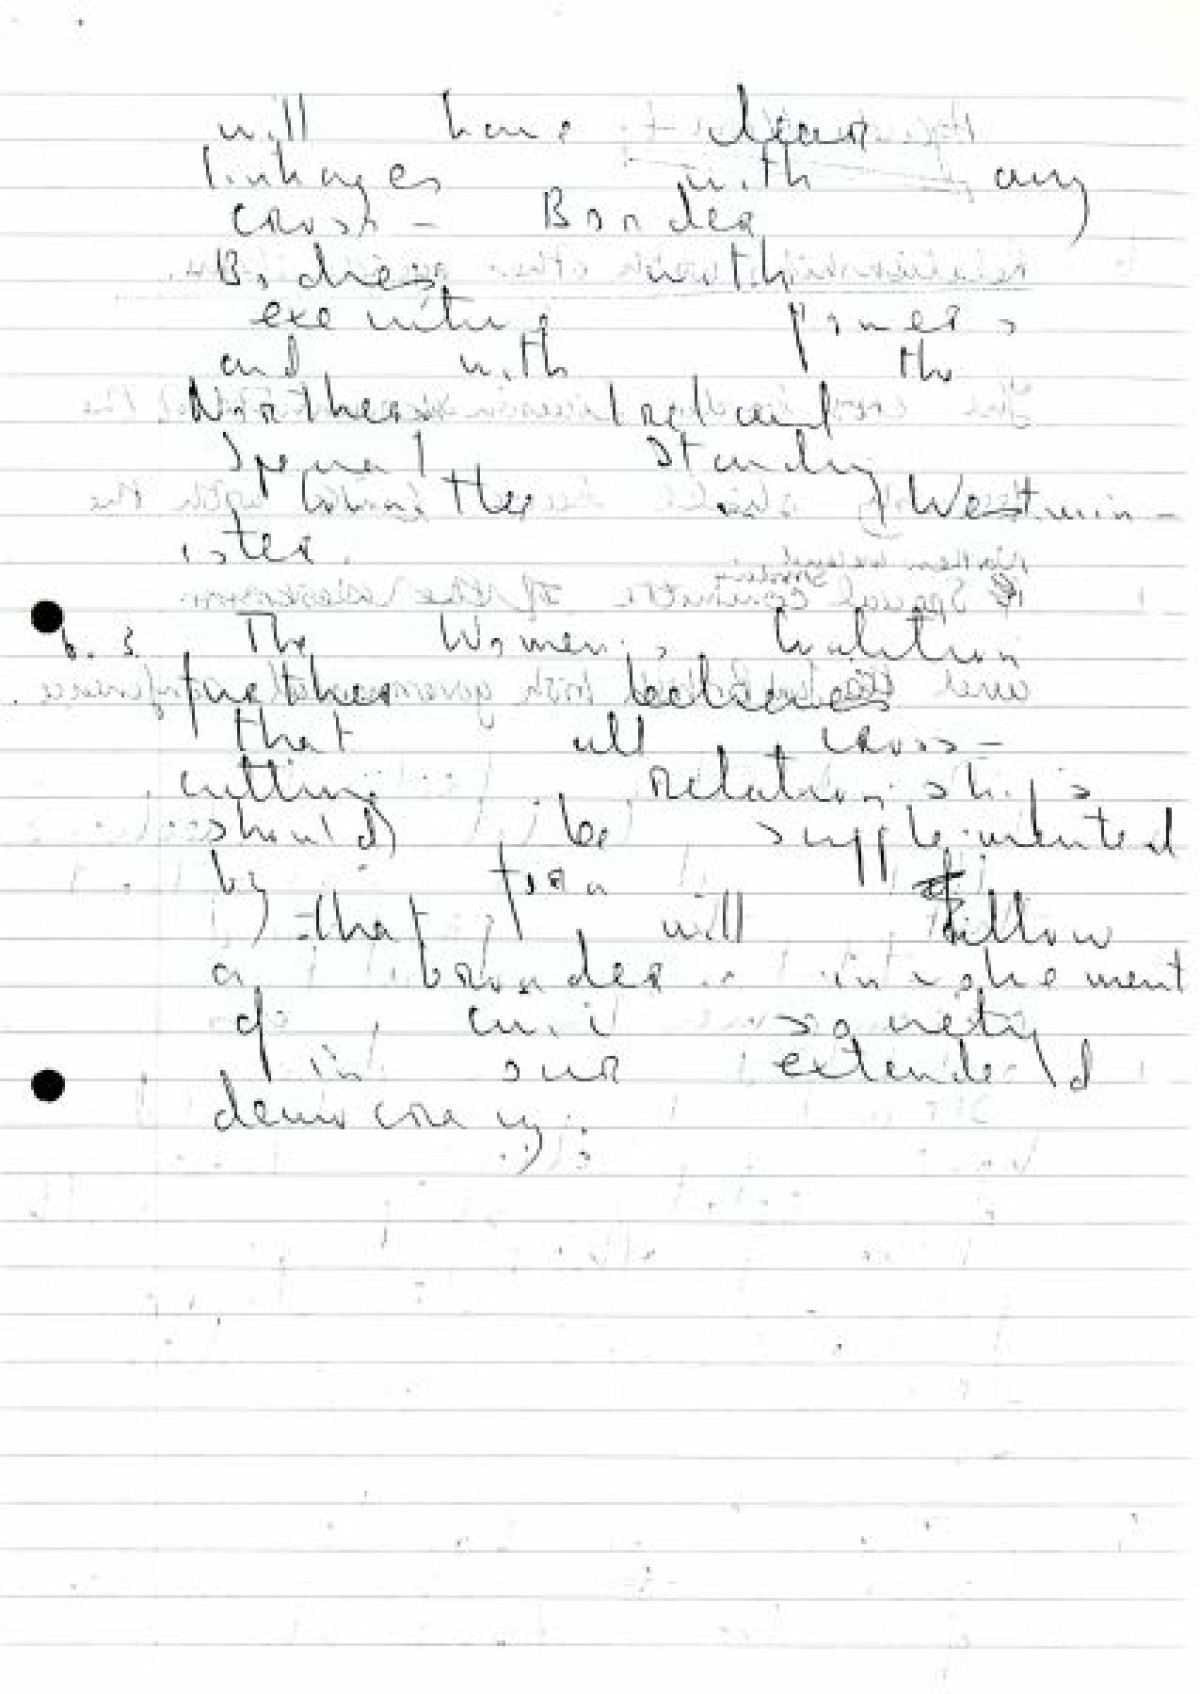 will have clear
linkages with any
cross - Border
Bodies with
executive powers
and with the
Northern Ireland
Special Standing
in Westmin-
ister.
6.3 The Women's Coalition
further believes
that all cross-
cutting relationships
should be supplemented
by fora
that will allow
a broader involvement
of civil society
in our extended
democracy.